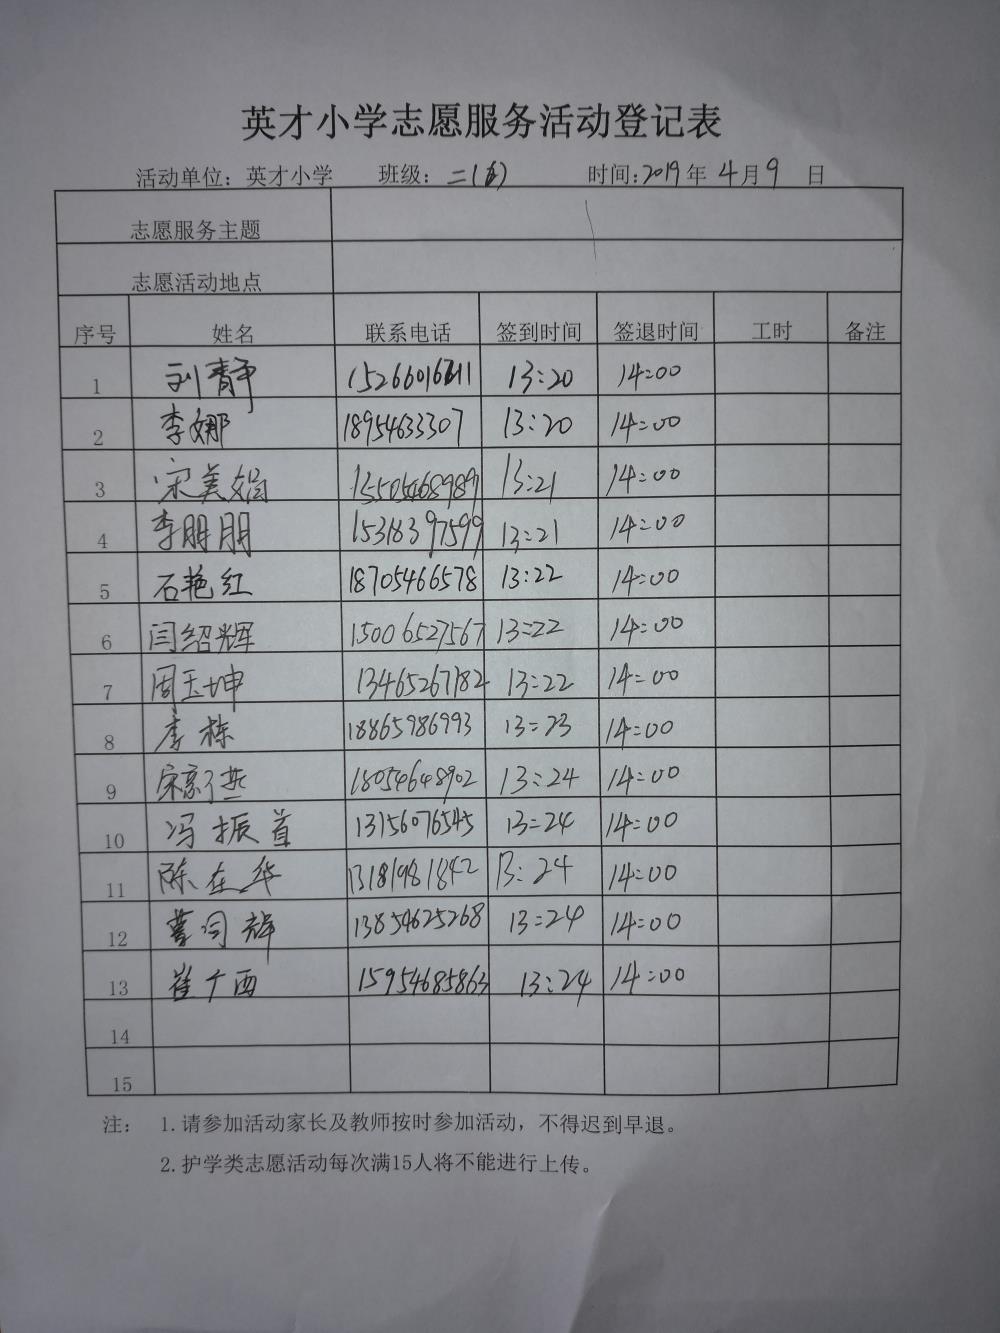 英才小学志愿服务活动登记表
活动单位：英才小学 班级：二(5) 时间：2019年4月9日
志愿服务主题
志愿活动地点
序号 姓名 联系电话 签到时间 签退时间 工时 备注
1 刘静 13:20 14:00
2 李娜 18954633307 13:20 14:00
3 宋美娟 15505468989 13:21 14:00
4 李朋朋 15318397599 13:21 14:00
5 石艳红 18705466578 13:22 14:00
6 闫绍辉 15006527567 13:22 14:00
7 周玉坤 13465267182 13:22 14:00
8 李栋 18865986993 13:23 14:00
9 18054648902 13:24 14:00
10 冯振首 13156076545 13:24 14:00
11 陈在华 13181981842 13:24 14:00
12 曹同辉 13854625268 13:24 14:00
13 崔广西 15954685863 13:24 14:00
14
15
注： 1.请参加活动家长及教师按时参加活动，不得迟到早退。
2.护学类志愿活动每次满15人将不能进行上传。